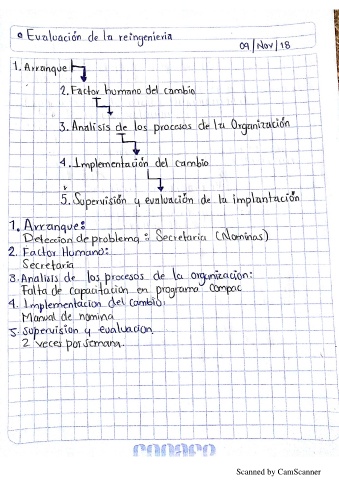 • Evaluación de la reingenieria
09/Nov/18
1. Arranque
2. Factor humano del cambio
3. Analisis de los procesos de la Organización
4. Implementación del cambio
5. Supervisión y evaluación de la implantación
1. Arranque:
Deteccion de problema: Secretaria (Nominas)
2. Factor Humano:
Secretaria
3. Analisis de los procesos de la organizacion:
Falta de capacitacion en programa compac
4. Implementacion del cambio:
Manual de nomina
5. Supervision y evaluacion
2 veces por semana.
Scanned by CamScanner